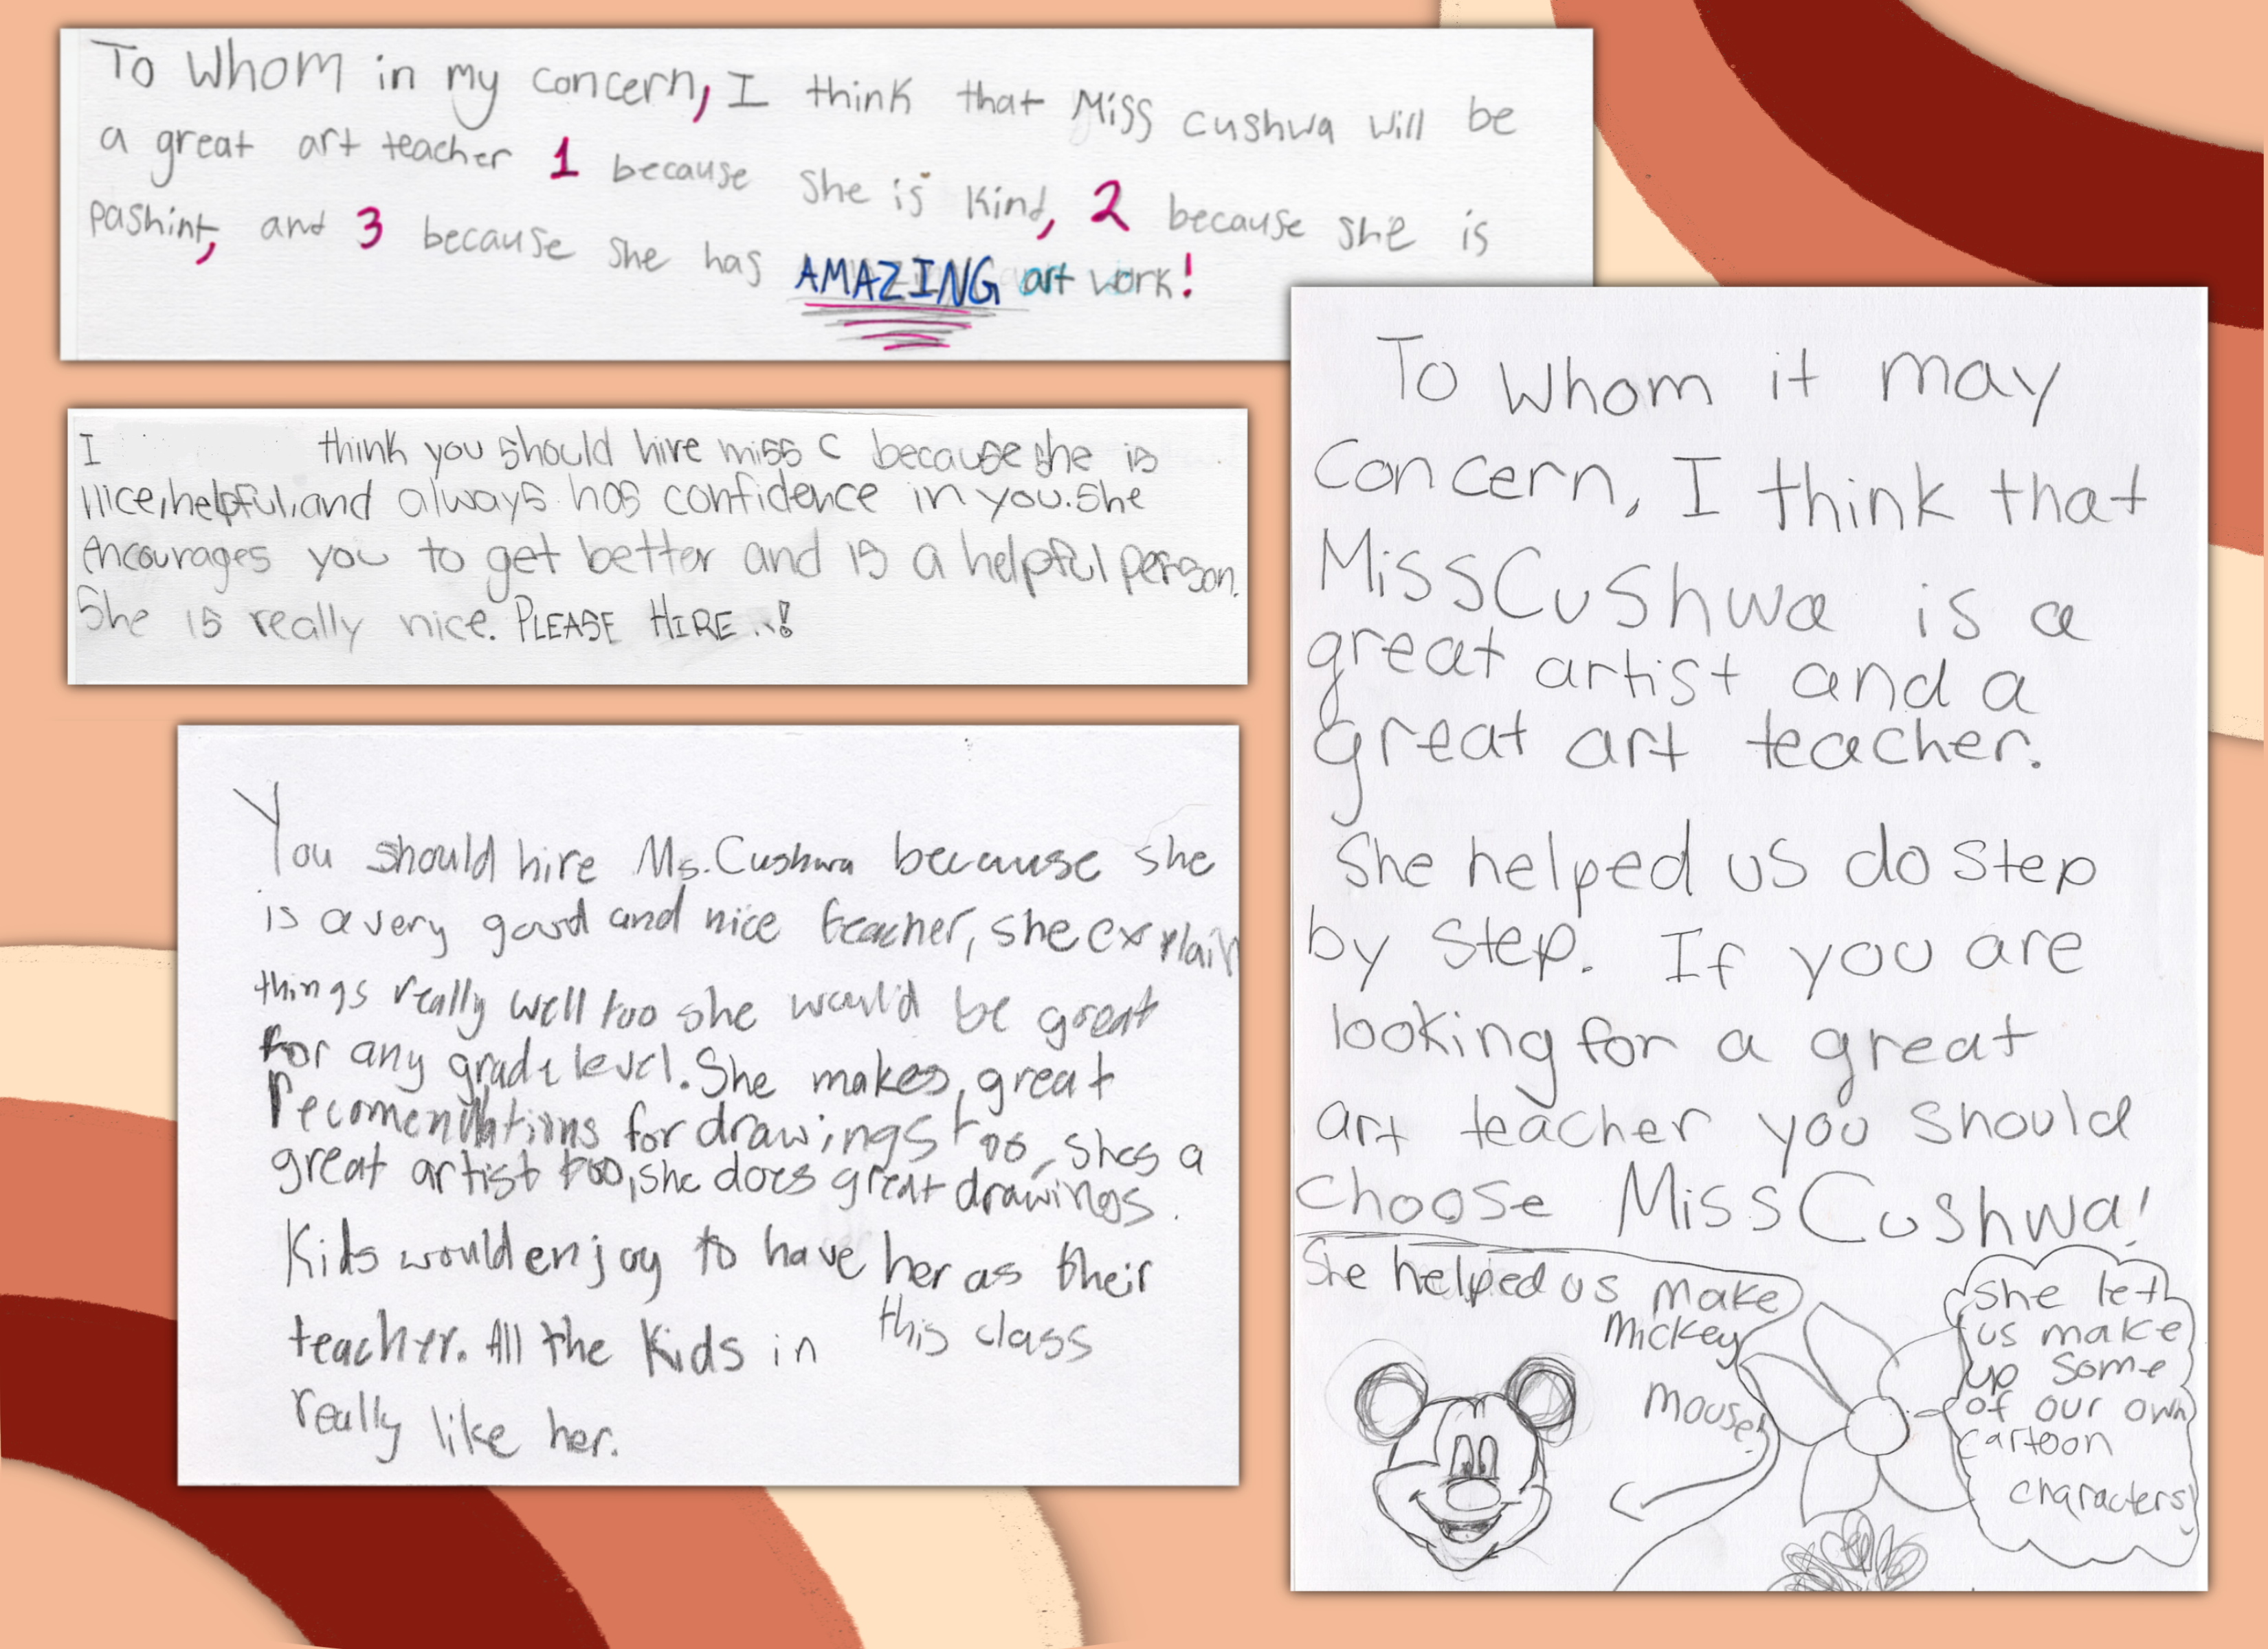 To Whom in my concern, I think that Miss cushwa will be
a great art teacher 1 because she is kind, 2 because she is
pashint, and 3 because she has AMAZING art work!
I think you should hire miss C because she is
nice, helpful, and always has confidence in you. She
encourages you to get better and is a helpful person.
She is really nice. PLEASE HIRE..!
You should hire Ms. Cushwa because she
is a very good and nice teacher, she explain
things really well too she would be great
for any grade level. She makes, great
recomendations for drawings too, shes a
great artist too, she does great drawings.
Kids would enjoy to have her as their
teacher. All the kids in this class
really like her.
To Whom it may
concern, I think that
Miss Cushwa is a
great artist and a
great art teacher.
She helped us do step
by step. If you are
looking for a great
art teacher you should
choose Miss Cushwa!
She helped us make
Mickey
Mouse!
She let
us make
up some
of our own
cartoon
characters